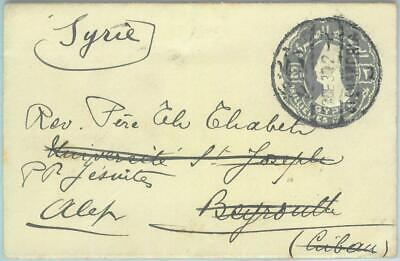 Syrie
Rev. Père Teh Chabeth
Université St Joseph
PP Jésuites
Alep Beyrouth
(Liban)